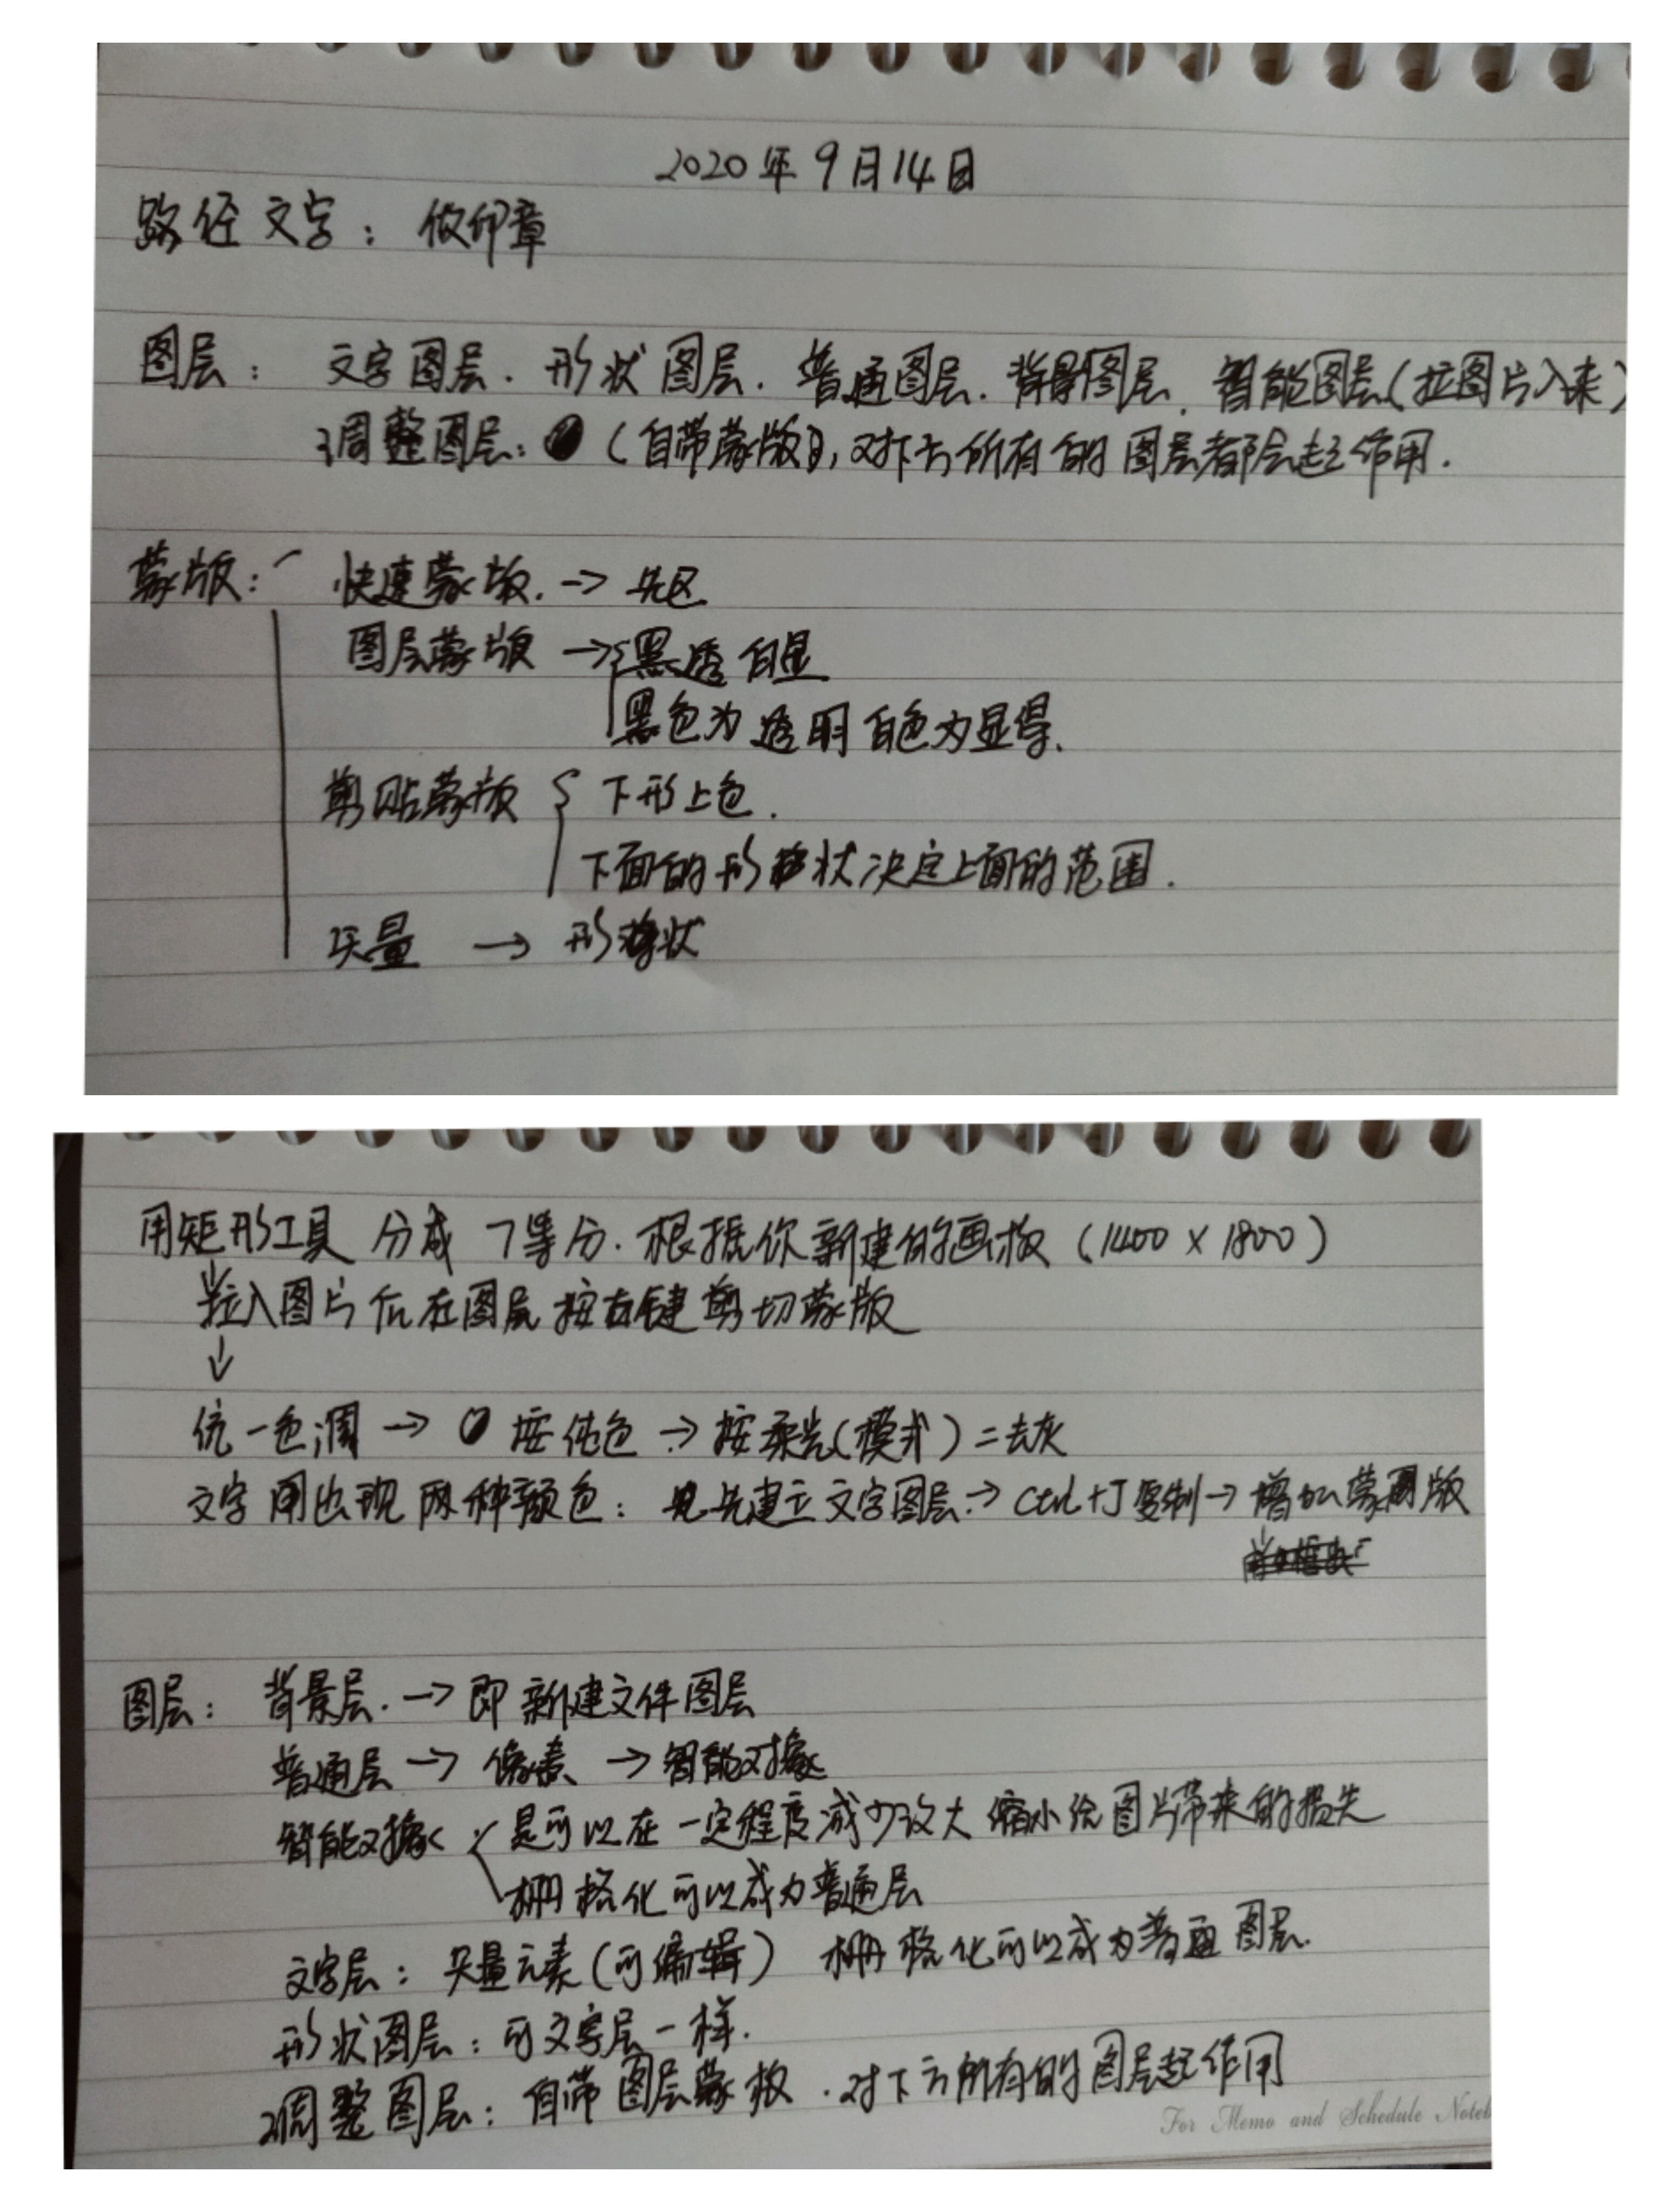 2020年9月14日
路径文字：做印章
图层：文字图层.形状图层.普通图层.背景图层.智能图层(拉图片入来)
调整图层：（自带蒙版),对下方所有的图层都会起作用.
蒙版：快速蒙版.→先区
图层蒙版→黑透白显
黑色为透明白色为显得.
剪贴蒙版 下形上色.
下面的形状决定上面的范围.
矢量→形状
用矩形工具 分成 7等分.根据你新建的画板(1400×1800)
拉入图片后在图层按右键剪切蒙版
↓
统一色调→按纯色→按柔光(模式)=去灰
文字 出现两种颜色：先建立文字图层→Ctrl+J复制→增加蒙版
图层：背景层.→即新建文件图层
普通层→像素→智能对象
智能对象 是可以在一定程度减少放大缩小给图片带来的损失
栅格化可以成为普通层
文字层：矢量元素(可编辑) 栅格化可以成为普通图层.
形状图层：可文字层一样.
调整图层：自带图层蒙板.对下方所有的图层起作用
For Memo and Schedule Noteb